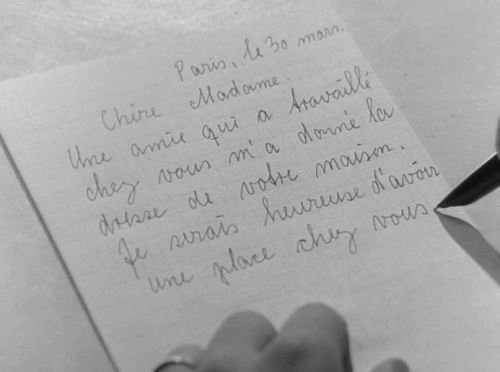 Paris, le 30 mars.
Chère Madame.
Une amie qui a travaillé
chez vous m'a donné la
dresse de votre maison.
Je serais heureuse d'avoir
une place chez vous